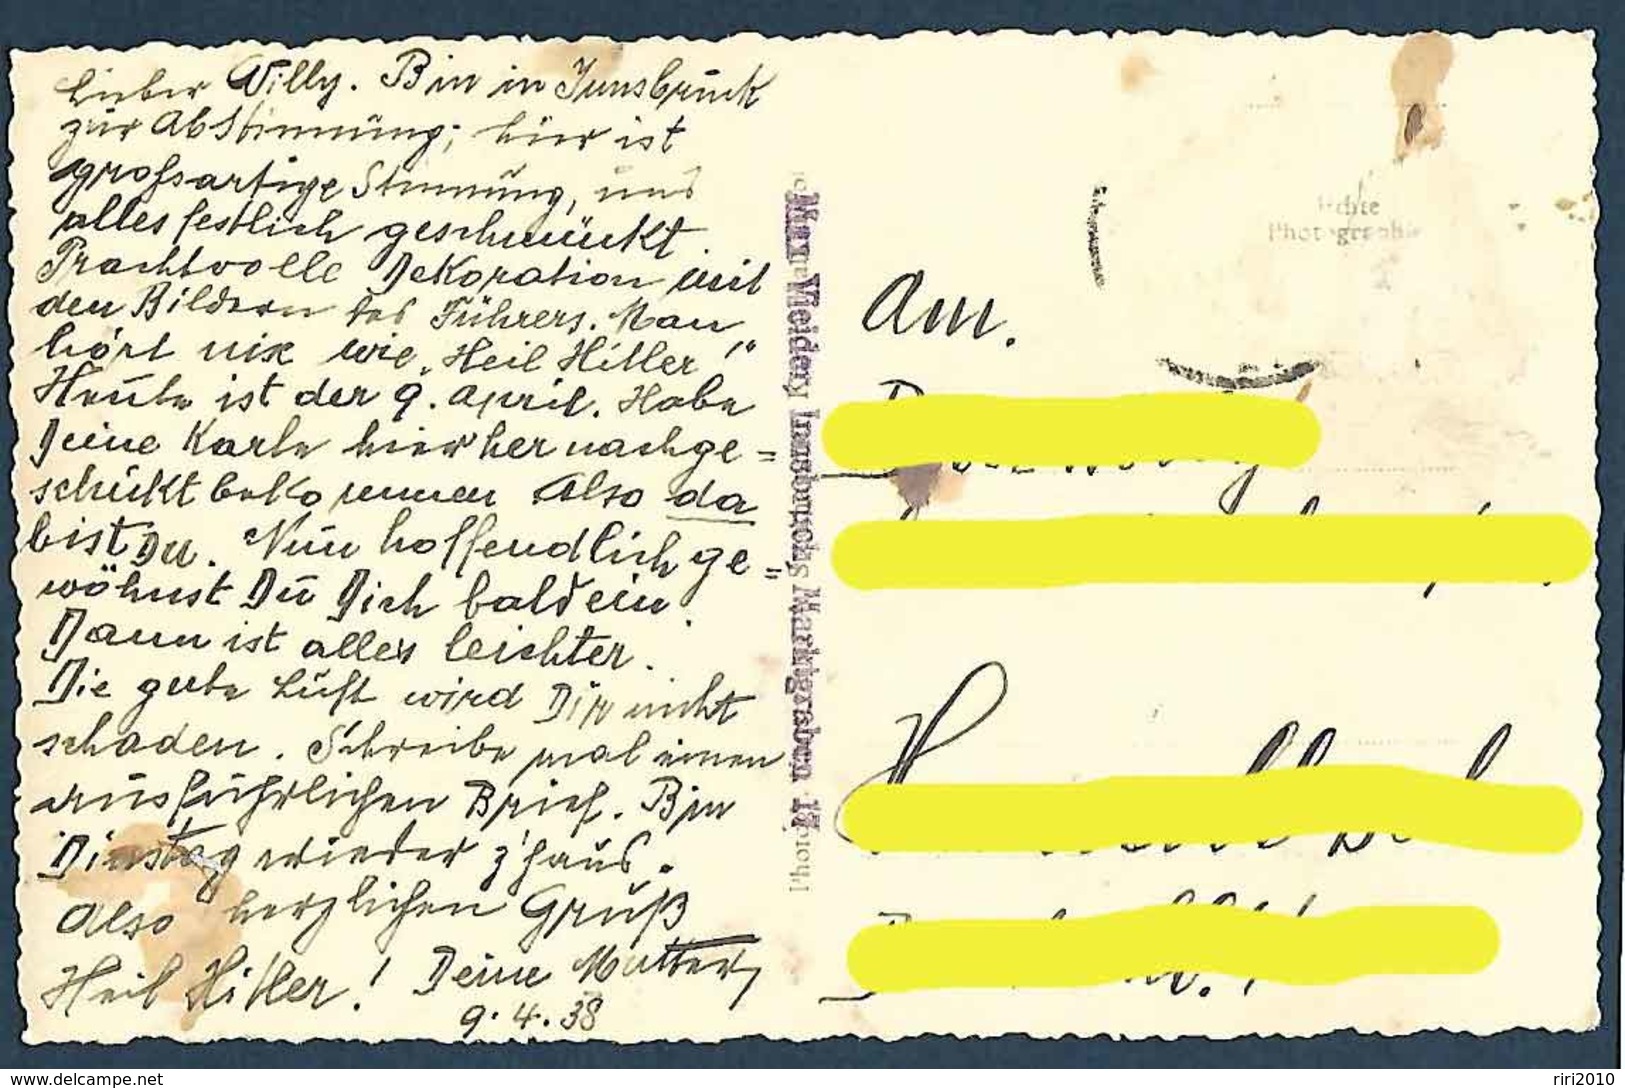 Lieber Willy. Bin in Innsbruck
zur Abstimmung; hier ist
großartige Stimmung, und
alles festlich geschmückt.
Prachtvolle Dekoration mit
den Bildern des Führers. Man
hört nix wie „Heil Hitler!“
Heute ist der 9. April. Habe
Deine Karte hierher nachge=
schickt bekommen Also da
bist Du. Nun hoffendlich ge=
wöhnst Du Dich bald ein.
Dann ist alles leichter.
Die gute Luft wird Dir nicht
schaden. Schreibe mal einen
ausführlichen Brief. Bin
Dienstag wieder z'haus.
Also herzlichen Gruß
Heil Hitler! Deine Mutter,
9.4.38
Innsbruck, Marktgraben 17
Echte
Photographie
An
delcampe.net
riri2010